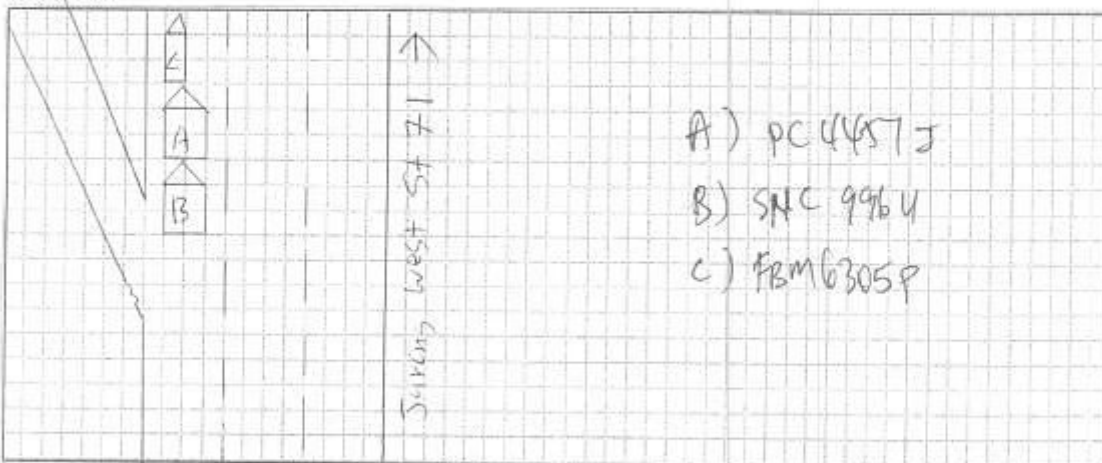 C
A
B
Jurong West St 71
A) PC4457J
B) SMC 996U
C) FBM6305P